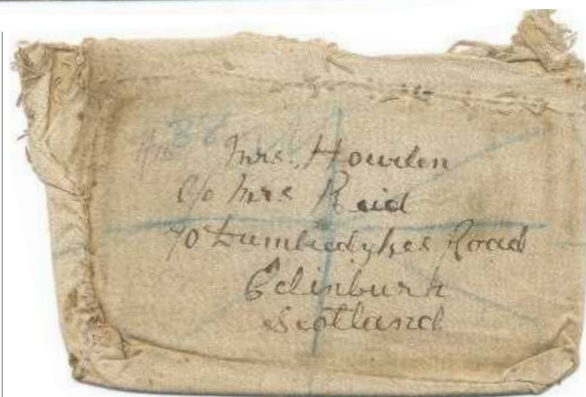 38
Mrs. Howden
c/o Mrs Reid
70 Dumbiedykes Road
Edinburh
Scotland